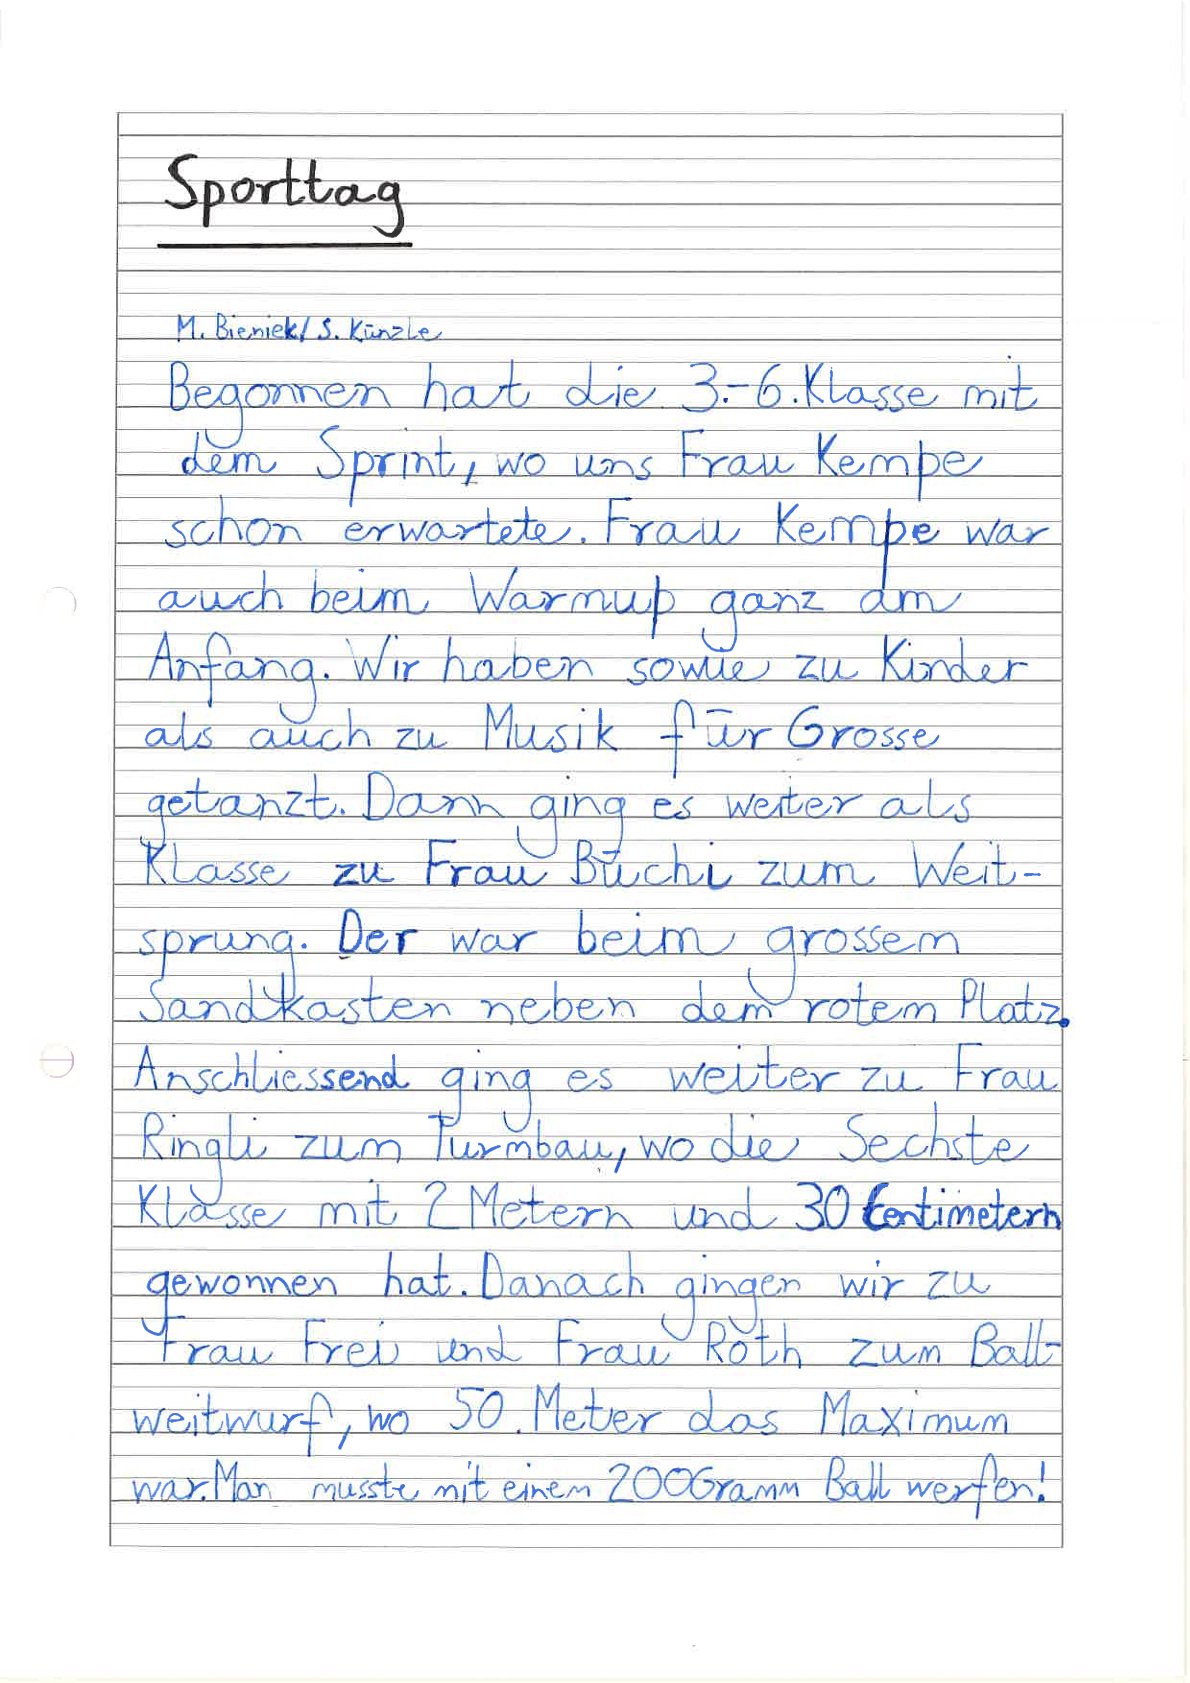 Sporttag
M. Bieniek/ S. Künzle
Begonnen hat die 3.-6. Klasse mit
dem Sprint, wo uns Frau Kempe
schon erwartete. Frau Kempe war
auch beim Warmup ganz am
Anfang. Wir haben sowie zu Kinder
als auch zu Musik für Grosse
getanzt. Dann ging es weiter als
Klasse zu Frau Büchi zum Weit-
sprung. Der war beim grossem
Sandkasten neben dem rotem Platz.
Anschliessend ging es weiter zu Frau
Ringli zum Turmbau, wo die Sechste
Klasse mit 2 Metern und 30 Centimetern
gewonnen hat. Danach gingen wir zu
Frau Frei und Frau Roth zum Ball-
weitwurf, wo 50. Meter das Maximum
war. Man musste mit einem 200Gramm Ball werfen!